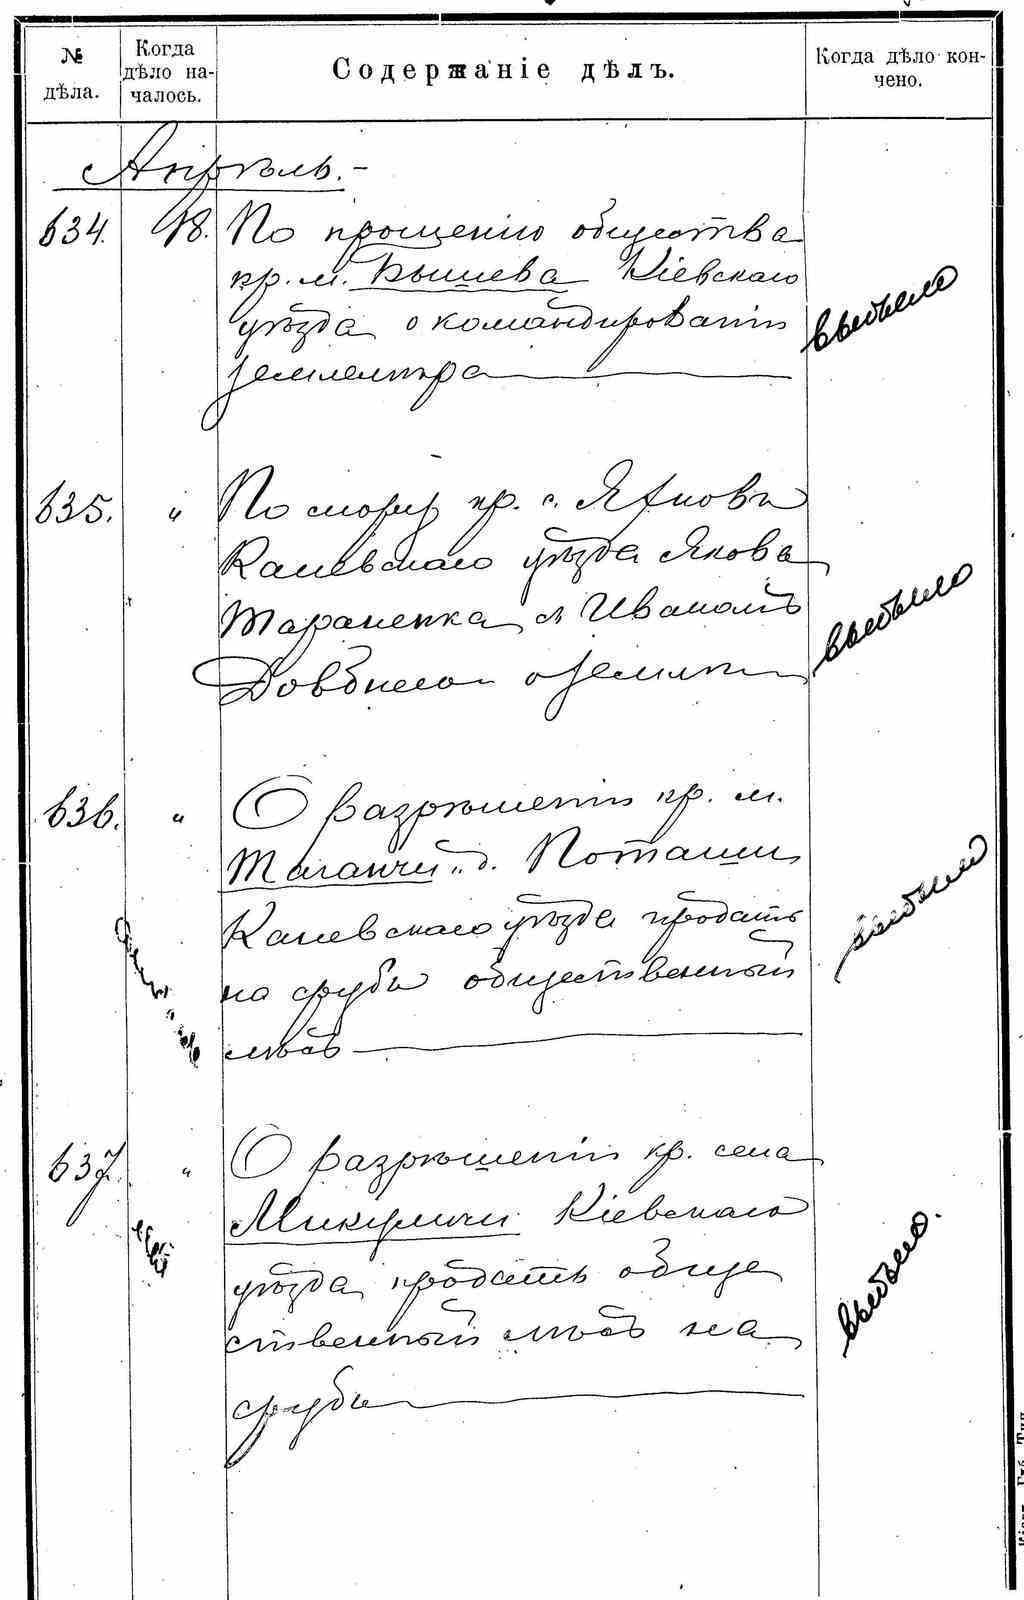 № дѣла.
Когда дѣло на-
чалось.
Содержаніе дѣлъ.
Когда дѣло кон-
чено.
Апрѣль.-
634. 18. По прошенію общества
кр. м. Бышева Кіевскаго
уѣзда о командированіи
землемѣра
выбыло
635. " По спору кр. с. Яхновъ
Каневскаго уѣзда Якова
Тараненка съ Иваномъ
Довбнею о землѣ
выбыло
636. " О разрѣшеніи кр. м.
Таганчи и д. Поташни
Каневскаго уѣзда продать
на срубъ общественный
лѣсъ
выбыло
637. " О разрѣшеніи кр. села
Микуличи Кіевскаго
уѣзда продать обще
ственный лѣсъ на
срубъ
выбыло.